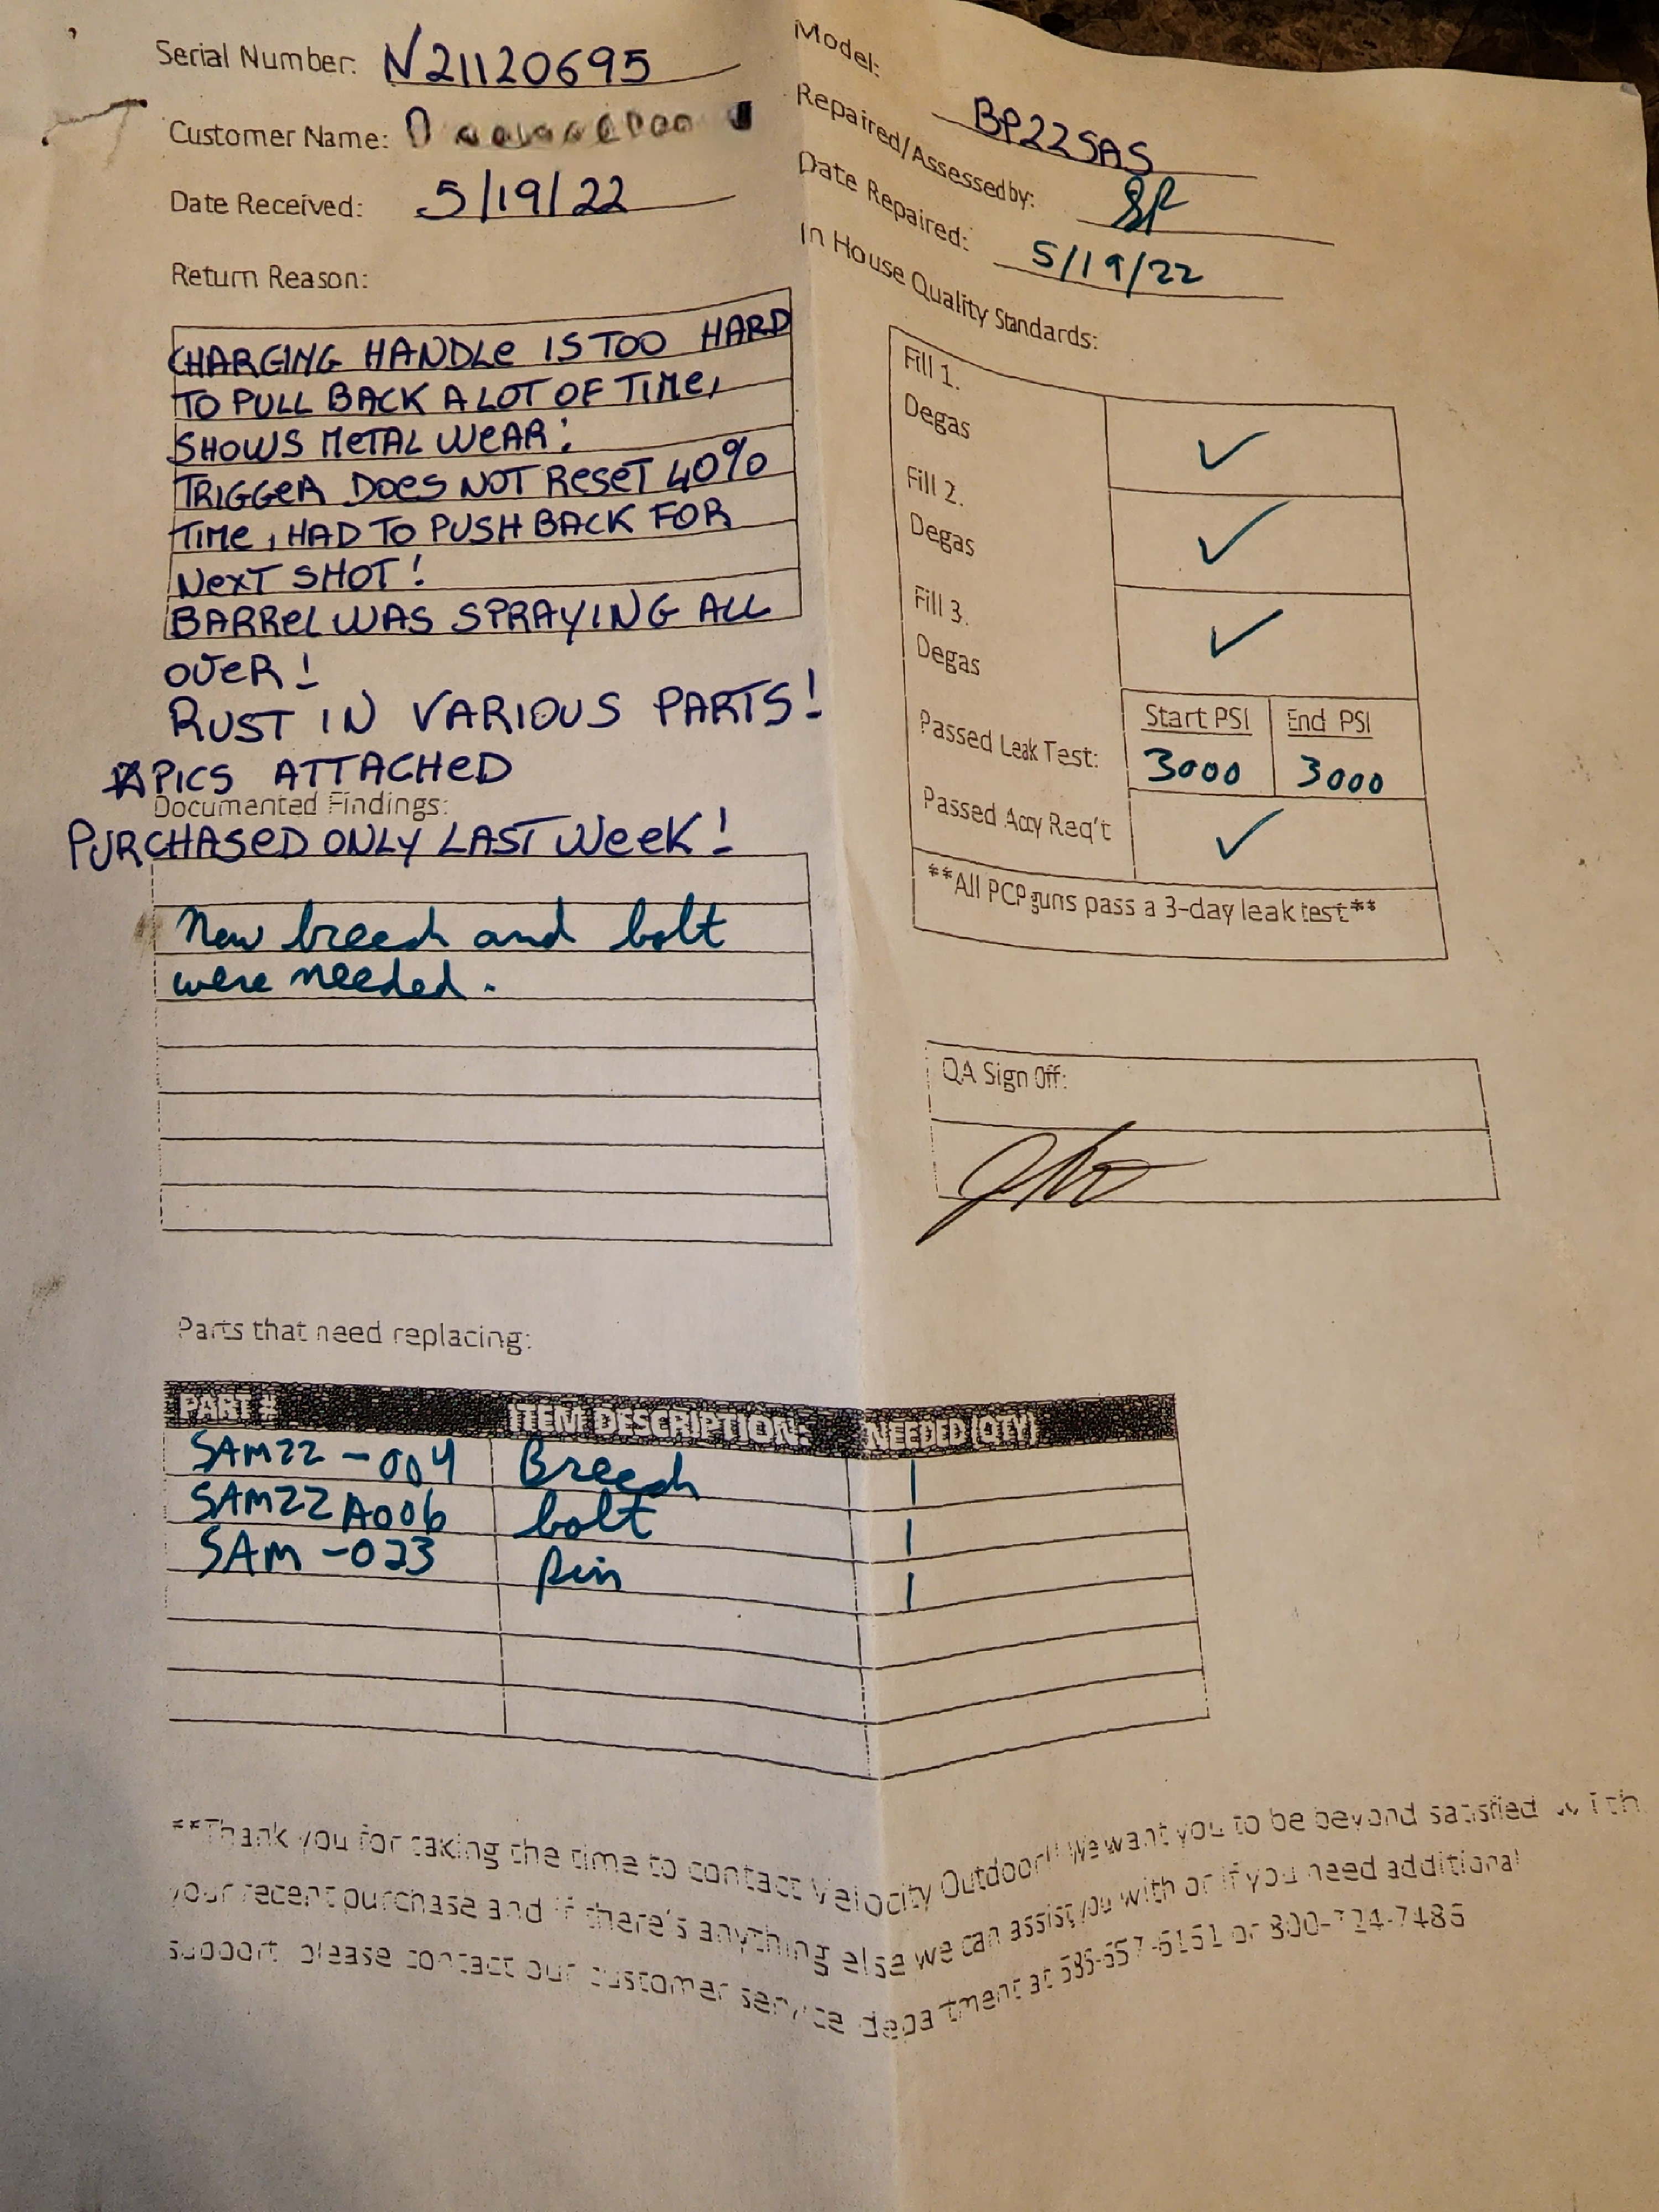 Serial Number: N21120695
Customer Name:
Date Received: 5/19/22
Return Reason:
CHARGING HANDLE IS TOO HARD
TO PULL BACK A LOT OF TIME,
SHOWS METAL WEAR;
TRIGGER DOES NOT RESET 40%
TIME, HAD TO PUSH BACK FOR
NEXT SHOT!
BARREL WAS SPRAYING ALL
OVER!
RUST IN VARIOUS PARTS!
PICS ATTACHED
Documented Findings:
PURCHASED ONLY LAST WEEK!
New breech and bolt
were needed.
Model: BP22SAS
Repaired/Assessed by:
Date Repaired: 5/19/22
In House Quality Standards:
Fill 1. ✓
Degas
Fill 2. ✓
Degas
Fill 3. ✓
Degas
Start PSI End PSI
Passed Leak Test: 3000 3000
Passed Accy Req't ✓
**All PCP guns pass a 3-day leak test**
QA Sign Off:
Parts that need replacing:
PART # ITEM DESCRIPTION: NEEDED (QTY)
SAM22-004 Breech 1
SAM22A006 bolt 1
SAM-023 Pin 1
**Thank you for taking the time to contact Velocity Outdoor!! We want you to be beyond satisfied with
your recent purchase and if there's anything else we can assist you with or if you need additional
support, please contact our customer service department at or